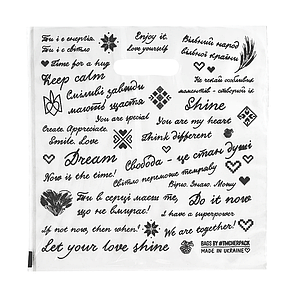 Ти і є енергія.
Ти і є світло
Enjoy it.
Love yourself
Вільний народ
вільної країни
Time for a hug
Keep calm
Сміливі завжди
мають щастя
Не чекай особливих
моментів - створюй їх
Shine
You are special
You are my heart
Create. Appreciate.
Smile. Love
Think different
Dream
Свобода - це стан душі
Now is the time!
Світло переможе темряву
Вірю. Знаю. Можу
Ти в серці маєш те,
що не вмирає!
Do it now
I have a superpower
If not now, then when?
We are together!
Let your love shine
BAGS BY #TMCHERPACK
MADE IN UKRAINE